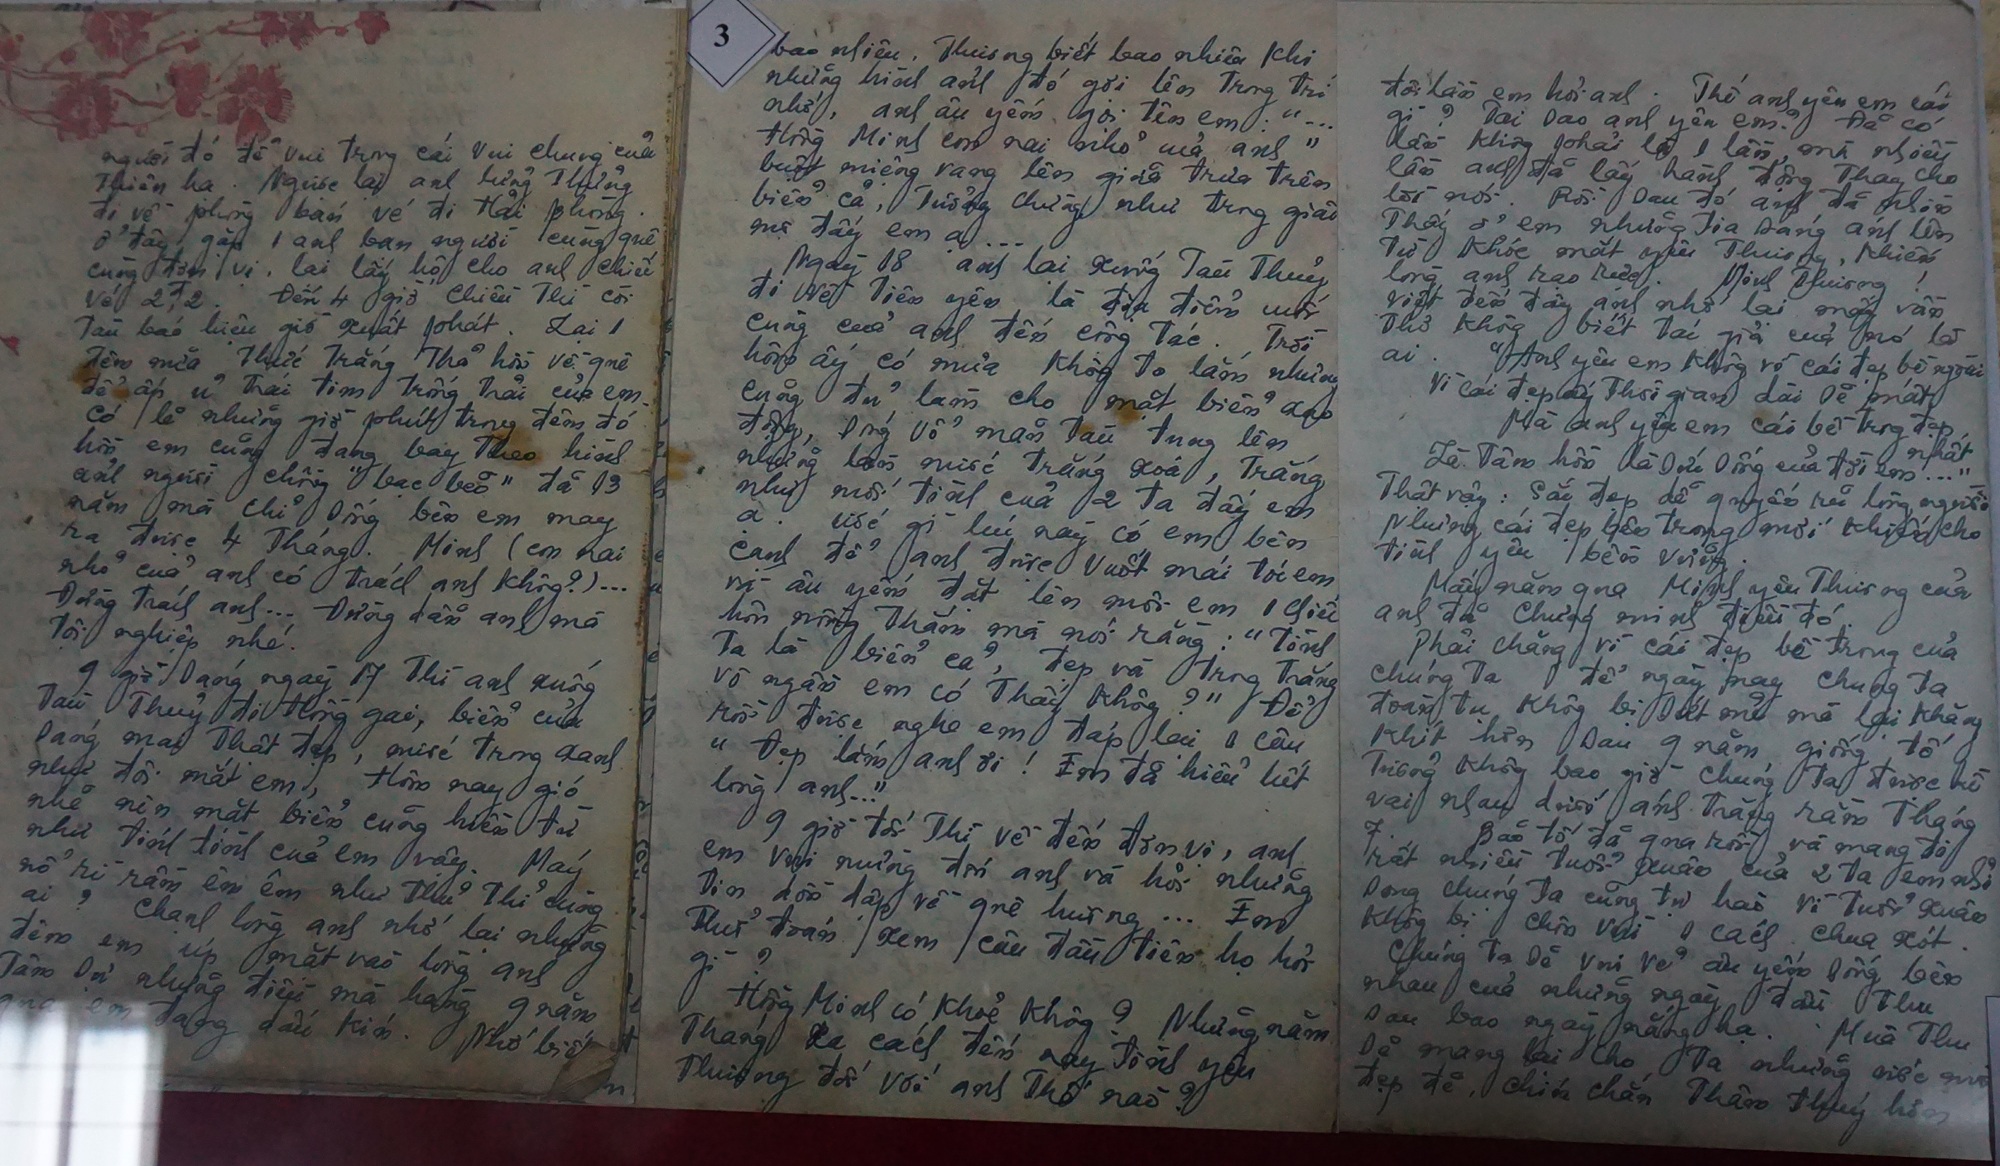 người đó để vui trong cái vui chung của
thiên hạ. Ngược lại anh lững thững
đi về phòng bán vé đi Hải phòng.
ở đây gặp 1 anh bạn người cùng quê
cùng đơn vị, lại lấy hộ cho anh chiếc
vé 2,2. Đến 4 giờ chiều thì còi
Tàu báo hiệu giờ xuất phát. Lại 1
đêm nữa thức trắng thả hồn về quê
để ấp ủ trái tim trống trải của em.
Có lẽ những giờ phút trong đêm đó
hồn em cũng đang bay theo hình
ảnh người chồng "bạc bẽo" đã 13
năm mà chỉ sống bên em may
ra được 4 tháng. Minh (con nai
nhỏ của anh có trách anh không?)...
Đừng trách anh... Đừng dằn anh mà
tội nghiệp nhé.
9 giờ sáng ngày 17 thì anh xuống
Tàu thuỷ đi Hồng gai, biển của
sáng mai thật đẹp, nước trong xanh
như đôi mắt em, Hôm nay gió
nhẹ nên mặt biển cũng hiền từ
như tính tình của em vậy. Máy
nổ rì rầm êm êm như thủ thỉ cùng
ai? Chạnh lòng anh nhớ lại những
đêm em úp mặt vào lòng anh
Tâm sự những điều mà hàng 9 năm
qua em đang dấu kín. Nhớ biết
3
bao nhiêu, Thương biết bao nhiêu khi
những hình ảnh đó gợi lên trong trí
nhớ, anh âu yếm gọi tên em: "...
Hồng Minh con nai nhỏ của anh"
buột miệng vang lên giữa trưa trên
biển cả, Tưởng chừng như trong giấc
mơ đấy em ạ...
Ngày 18 anh lại xuống Tàu Thuỷ
đi về Tiên yên là địa điểm cuối
cùng của anh đến công tác. Trời
hôm ấy có mưa không to lắm nhưng
cũng đủ làm cho mặt biển xao
động, sóng vỗ mạn Tàu tung lên
những làn nước trắng xoá, Trắng
như mối tình của 2 ta đấy em
ạ. ước gì lúc này có em bên
cạnh để anh được vuốt mái tóc em
và âu yếm đặt lên môi em 1 chiếc
hôn nồng thắm mà nói rằng: "Tình
Ta là biển cả, đẹp và trong trắng
vô ngần em có thấy không?" Để
rồi được nghe em đáp lại 1 câu
"Đẹp lắm anh ơi! Em đã hiểu hết
lòng anh..."
9 giờ tối thì về đến đơn vị, anh
em vui mừng đón anh và hỏi những
tin dồn dập về quê hương... Em
Thử đoán xem câu đầu tiên họ hỏi
gì?
Hồng Minh có khoẻ không? Những năm
Tháng xa cách đến nay tình yêu
Thương đối với anh thế nào?
đôi lần em hỏi anh. Thế anh yêu em cái
gì? Tại sao anh yêu em? Đã có
lần không phải là 1 lần, mà nhiều
lần anh đã lấy hành động thay cho
lời nói. Rồi sau đó anh đã nhìn
thấy ở em những tia sáng ánh lên
từ khóe mắt yêu thương, khiến
lòng anh rạo rực. Minh thương!
viết đến đây anh nhớ lại mấy vần
thơ không biết tác giả của nó là
ai. "Anh yêu em không vì cái đẹp bề ngoài
Vì cái đẹp ấy thời gian dài sẽ mất
Mà anh yêu em cái bề trong đẹp
nhất
Là Tâm hồn là sức sống của đời em..."
Thật vậy: Sắc đẹp dễ quyến rũ lòng người
Nhưng cái đẹp bên trong mới khiến cho
tình yêu bền vững.
Mấy năm qua Minh yêu thương của
anh đã chứng minh điều đó.
Phải chăng vì cái đẹp bề trong của
chúng ta để ngày nay chúng ta
đoàn tụ không bị sứt mẻ mà lại khăng
khít hơn sau 9 năm giông tố
Tưởng không bao giờ chúng ta được kề
vai nhau dưới ánh trăng rằm tháng
7. Bão tố đã qua rồi, và mang đi
rất nhiều tuổi xuân của 2 ta em nhỉ
song chúng ta cũng tự hào vì tuổi xuân
không bị chôn vùi 1 cách chua xót.
Chúng ta sẽ vui vẻ âu yếm sống bên
nhau của những ngày đầu Thu
sau bao ngày nắng hạ. Mùa Thu
sẽ mang lại cho Ta những ước mơ
đẹp đẽ, chín chắn thâm thuý hơn